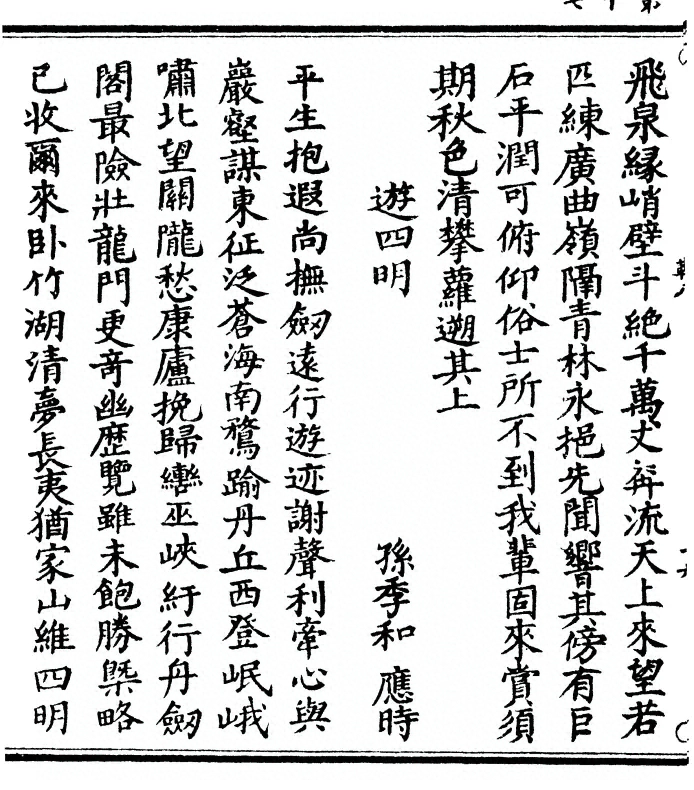 飛泉緣峭壁斗絶千萬丈奔流天上來望若
匹練廣曲嶺隔青林永挹先聞響其傍有巨
石平潤可俯仰俗士所不到我輩固來賞須
期秋色清攀蘿遡其上
遊四明
孫季和 應時
平生抱遐尚撫劔遠行遊迹謝聲利牽心與
巖壑謀東征泛蒼海南鶩踰丹丘西登岷峨
嘯北望關隴愁康廬挽歸轡巫峽紆行舟劔
閣最險壯龍門更竒幽歷覽雖未飽勝槩略
已收爾來卧竹湖清夢長夷猶家山維四明